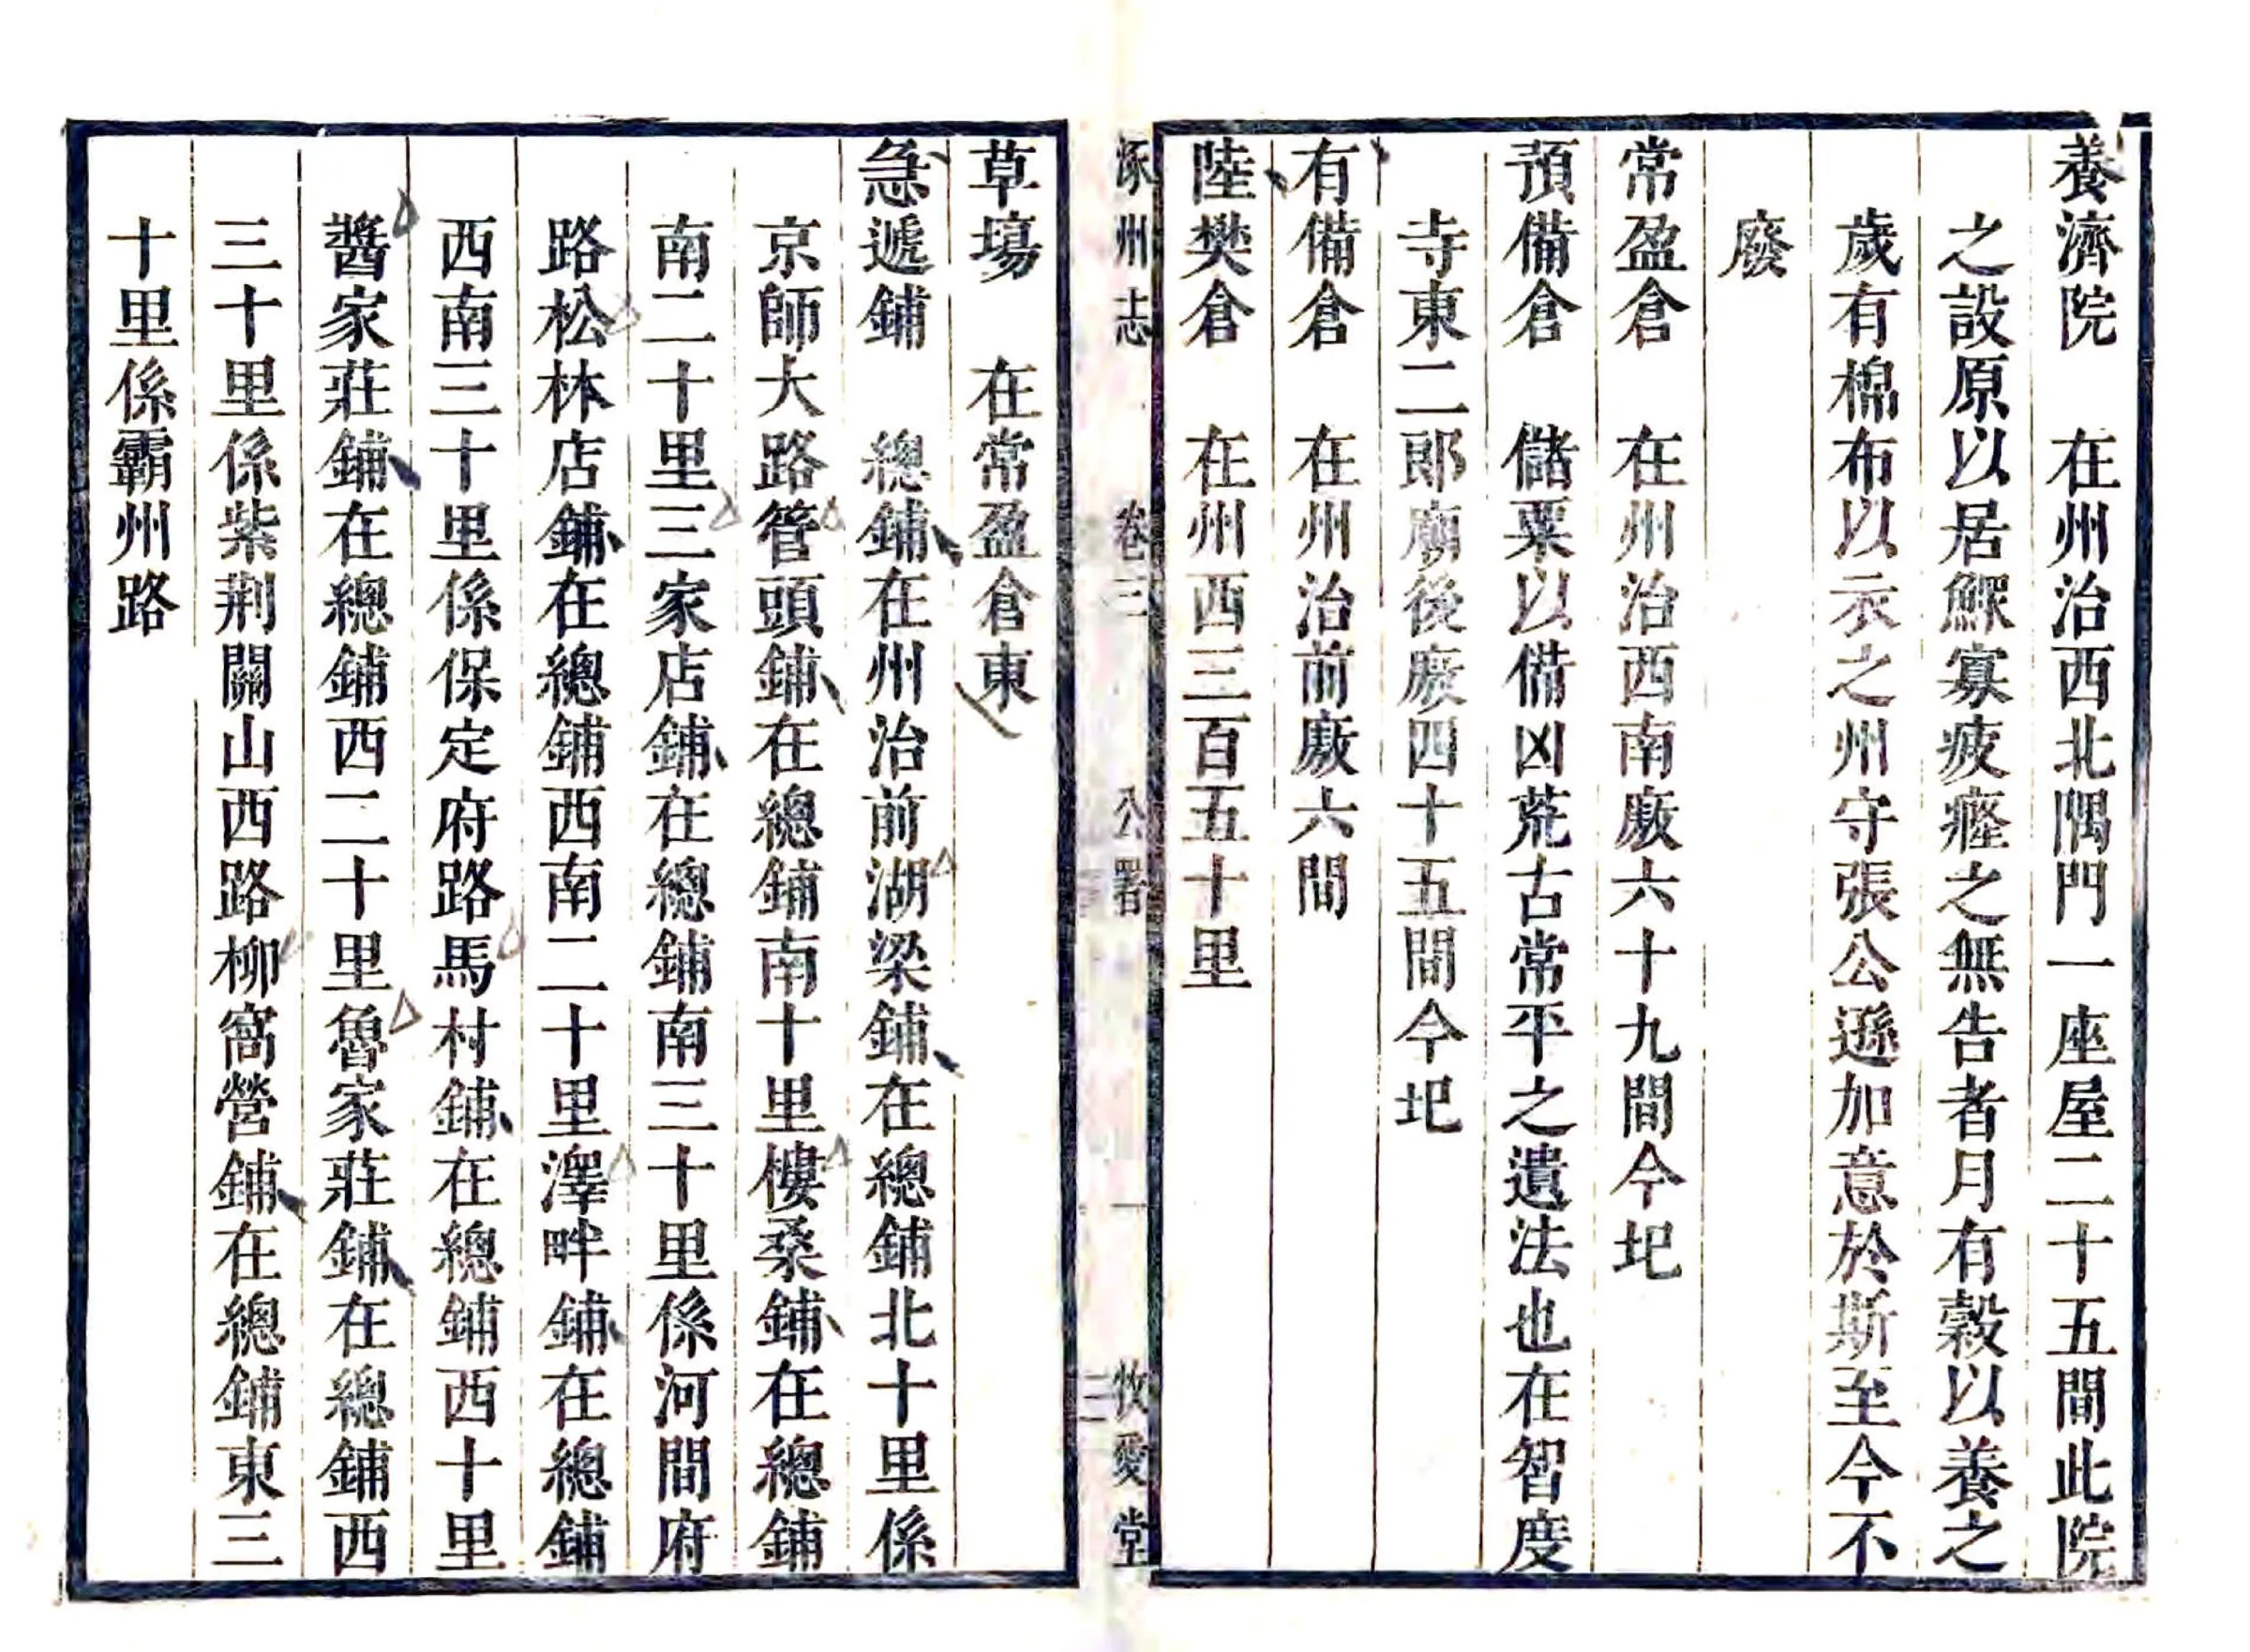 養濟院　在州治西北隅門一座屋二十五間此院
之設原以居鰥寡疲癃之無告者月有穀以養之
歲有棉布以衣之州守張公遜加意於斯至今不
廢
常盈倉　在州治西南廒六十九間今圯
預備倉　儲粟以備凶荒古常平之遺法也在智度
寺東二郎廟後廒四十五間今圯
有備倉　在州治前廒六間
陸樊倉　在州西三百五十里
涿州志　卷三　公署　三　牧愛堂
草塲　在常盈倉東
急遞鋪　總鋪在州治前湖梁鋪在總鋪北十里係
京師大路管頭鋪在總鋪南十里樓桑鋪在總鋪
南二十里三家店鋪在總鋪南三十里係河間府
路松林店鋪在總鋪西南二十里澤畔鋪在總鋪
西南三十里係保定府路馬村鋪在總鋪西十里
醬家莊鋪在總鋪西二十里魯家莊鋪在總鋪西
三十里係紫荆關山西路柳窩營鋪在總鋪東三
十里係霸州路